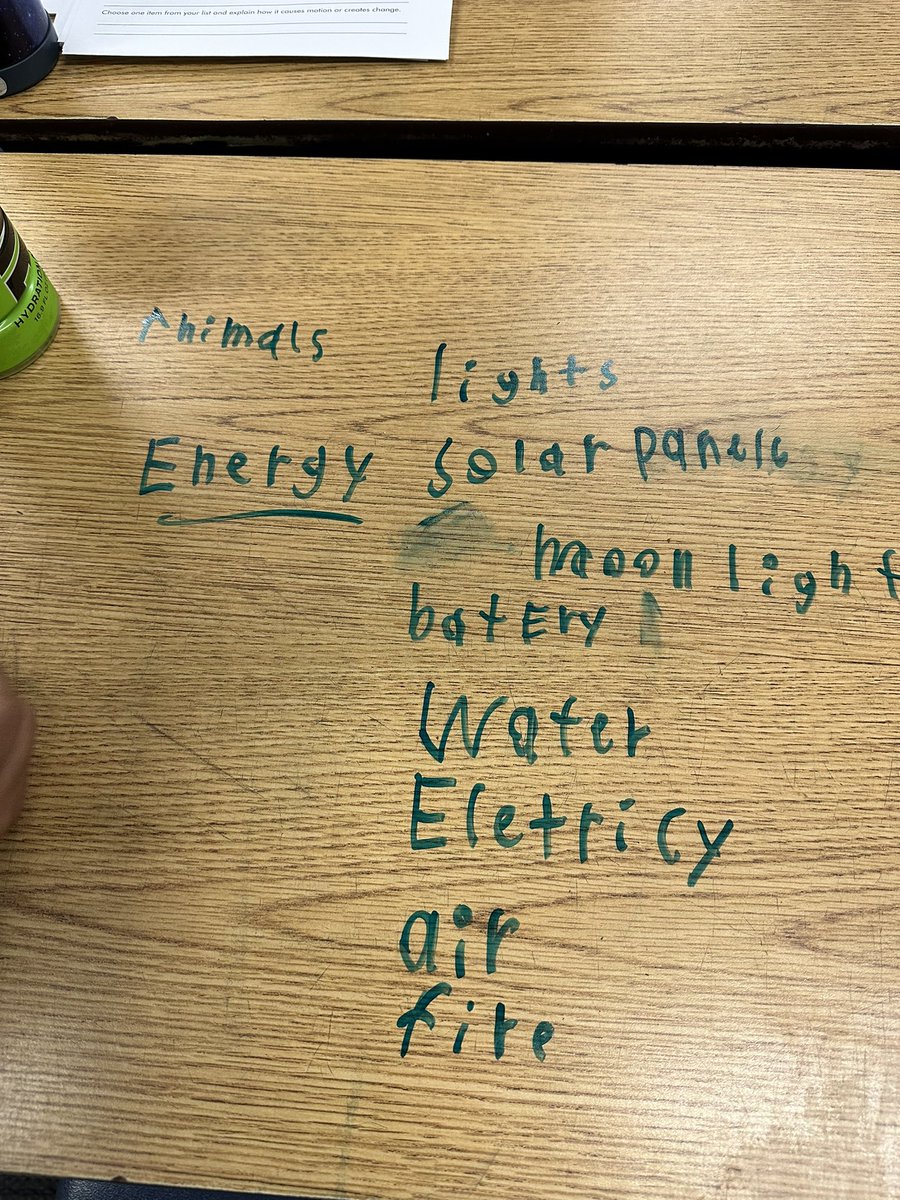 Choose one item from your list and explain how it causes motion or creates change.
HYDRATION
16.9 FL O
Animals
lights
Energy
Solar panels
moon light
batEry
Water
Eletricy
air
fire